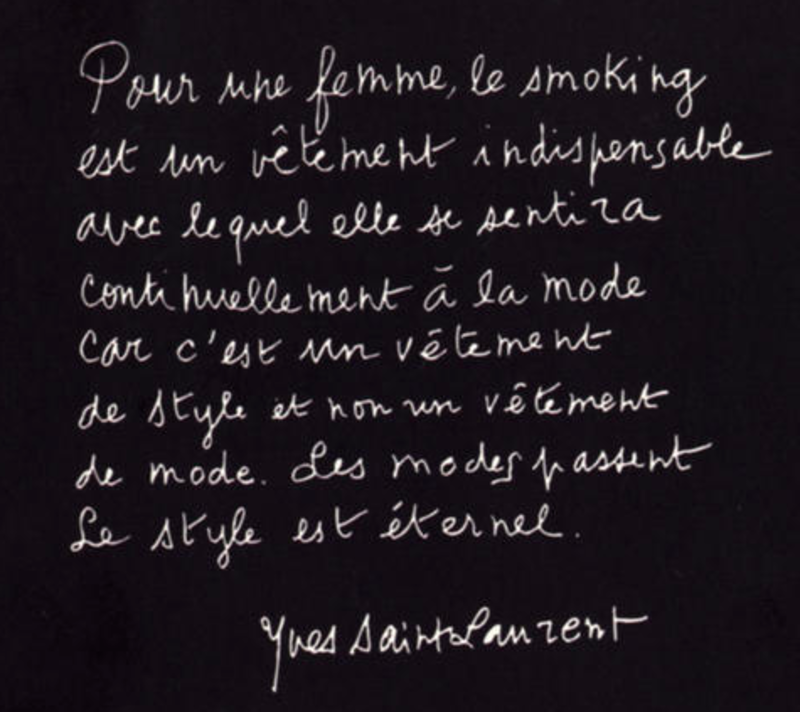 Pour une femme, le smoking
est un vêtement indispensable
avec lequel elle se sentira
continuellement à la mode
car c'est un vêtement
de style et non un vêtement
de mode. Les modes passent
Le style est éternel.
Yves Saint Laurent